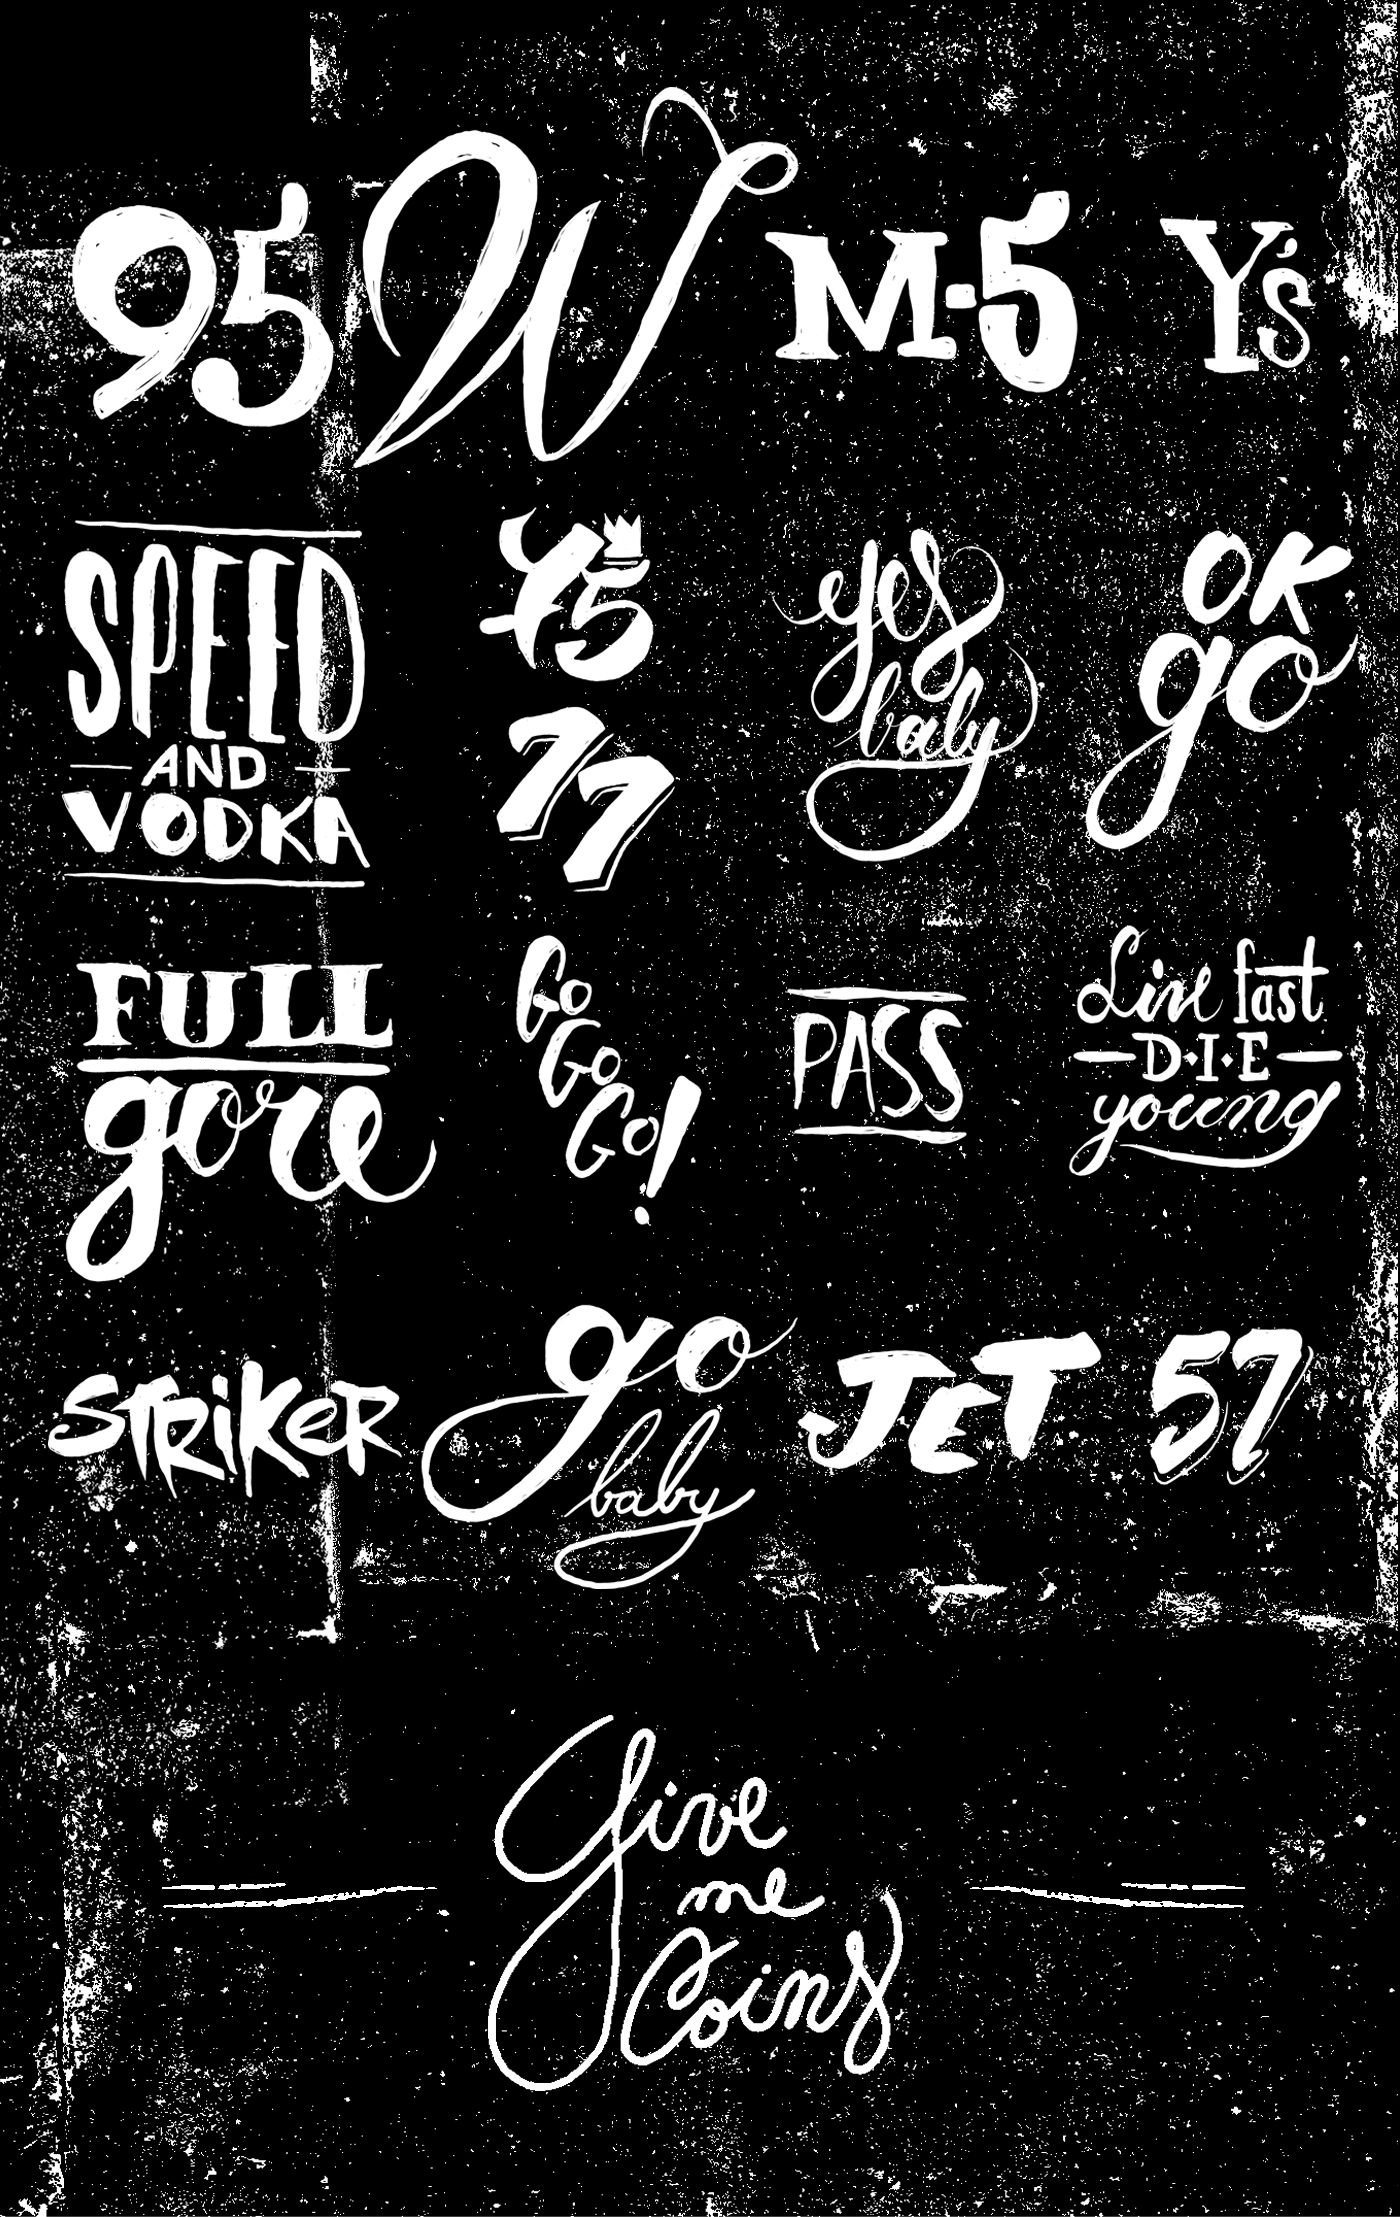 95 W M-5 Y's
SPEED
AND
VODKA
Y5
77
yes
baby
OK
go
FULL
gore
Go
Go
Go!
PASS
Live fast
D·I·E
young
STRiKER
go
baby
JET 57
Give
me
Coins